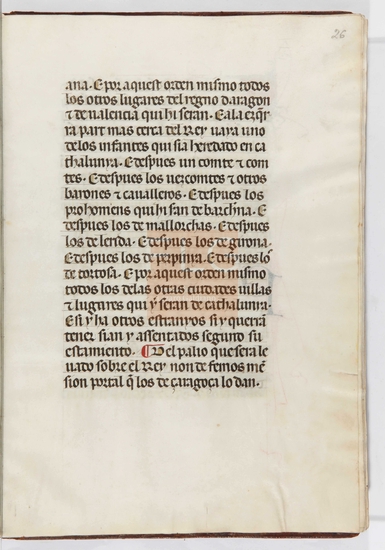 26
ana. E por aquest orden mismo todos
los otros lugares del regno daragon
⁊ de valencia qui hi seran. E a la ezqr̃
ra part mas cerca del Rey vaya uno
de los infantes qui sia heredado en ca
thalunya. E despues un comte ⁊ com
tes. E despues los vezcomtes ⁊ otros
barones ⁊ cavalleros. E despues los
prohomens qui hi san de barch̃na. E
despues los de mallorchas. E despues
los de lerida. E despues los de girona.
E despues los de perpinya. E despues lo᷒
de tortosa. E por aquest orden mismo
todos los delas otras ciudades villas
⁊ lugares qui y seran de cathalunya.
E si y ha otros estranyos si y querrã
tener sian y assentados segunt su
estamiento. ¶ Del palio que sera le
vado sobre el Rey non de femos mẽ
sion por tal q̃ los de çaragoça lo dan.